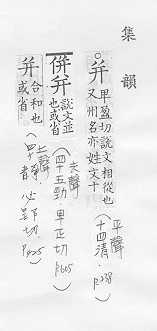 集韻
○并 卑盈切說文相從也又州名亦姓文十
(十四清. 平聲 p.238)
併并 說文並也或省
(四十五勁. 去聲 卑正切 p.605)
并 合和也或省
(四十靜. 上聲 必郢切 p.425)